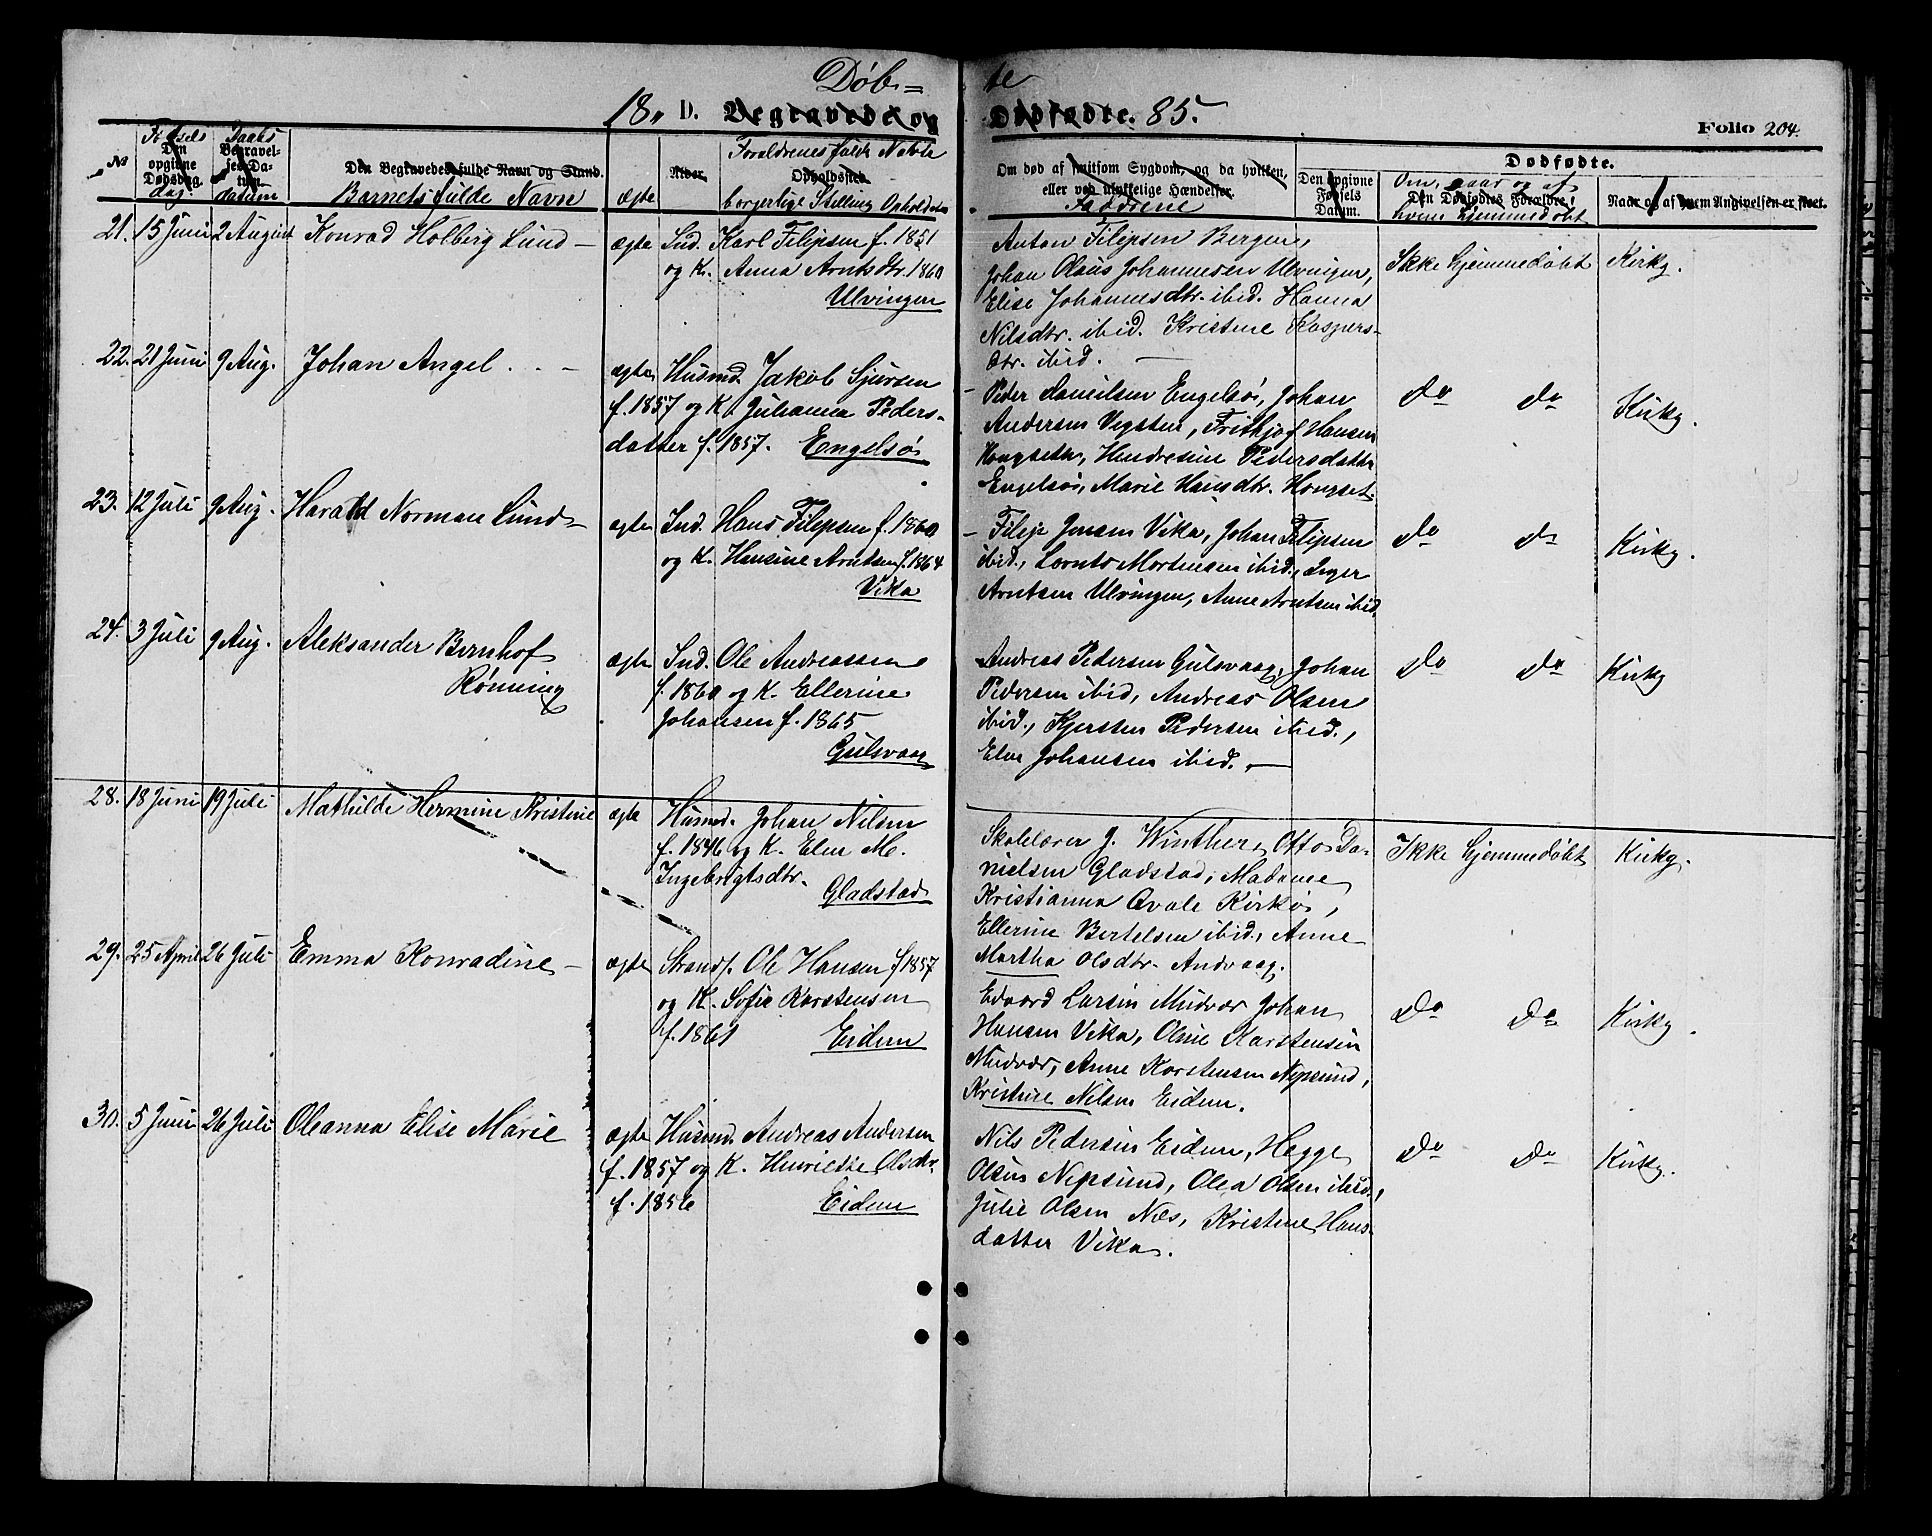 Døb= te
18 D. Begravede og Dødfødte. 85.
Folio 204.
No Fødsels Den opgivne Dødsdag. dag. Daabs Begravelses Datum. datum Den Begravedes fulde Navn og Stand. Barnets fulde Navn ægte Alder. Forældrenes fulde Navne Opholdssted. borgerlige Stilling Opholdste
Om død af smitsom Sygdom, og da hvilken, eller ved ulykkelige Hændelser. Faddrene Den opgivne Fødsels Datum. Dødfødte. Om, naar og af Den Dødfødtes Forældre. hvem hjemmedøbt Naar og af hvem Angivelsen er skeet.
21. 15 Juni 2 August Konrad Holberg Lund – ægte Ind. Karl Filipsen f. 1851
og K. Anna Arntsdtr. 1860
Ulvingen
Anton Filipsen Bergen,
Johan Olaus Johannesen Ulvingen,
Elise Johannesdtr. ibid. Hanna
Nilsdtr. ibid. Kristine Kaspers-
dtr. ibid. —
Ikke hjemmedøbt Kirkg.
22. 21 Juni 9 Aug. Johan Angel . . – ægte Husmd. Jakob Sjursen
f. 1857 og K. Juhanna Peders-
datter f. 1857. Engelsø
– Peder Danielsen Engelsø, Johan
Andersen Vegsten, Frithjof Hansen
Hongseth, Hendresine Pedersdatter
Engelsø, Marie Hansdtr. Hongset.
do do Kirkg.
23. 12 Juli 9 Aug. Harald Norman Lund – ægte Ind. Hans Filipsen f. 1860
og K. Hansine Arntsen f. 1864
Vika
– Filip Jensen Vika, Johan Filipsen
ibid., Lornts Mortensen ibid., Inger
Arntsen Ulvingen, Anne Arntsen ibid.
do do Kirkg.
24. 3 Juli 9 Aug. Aleksander Bernhof
Rønning
ægte Ind. Ole Andreassen
f. 1860 og K. Ellerine
Johansen f. 1865
Gulsvaag
Andreas Pedersen Gulsvaag, Johan
Pedersen ibid, Andreas Olsen
ibid., Kjersten Pedersen ibid.,
Elen Johansen ibid. —
do do Kirkg
28. 18 Juni 19 Juli Mathilde Hermine Kristine ægte Husmd. Johan Nilsen
f. 1846 og K. Elen M.
Ingebrigtsdtr.
Gladstad
Skolelærer J. Winther, Otto Da-
nielsen Gladstad, Madame
Kristianna Qvale Kirkø,
Ellerine Bertelsen ibid., Anne
Martha Olsdtr. Andvaag.
Ikke hjemmedøbt Kirkg.
29. 25 April 26 Juli Emma Konradine – ægte Strands. Ole Hansen f 1857
og K. Sofie Karstensen
f. 1861 Eidem
Edvard Larsen Mudvær Johan
Hansen Vika, Oline Karstensen
Mudvær, Anne Karstensen Nepsund,
Kristine Nilsen Eidem.
do do Kirkg.
30. 5 Juni 26 Juli Oleanna Elise Marie ægte Husmd. Andreas Andersen
f. 1857 og K. Henriette Olsdtr.
f. 1856 Eidem
Nils Pedersen Eidem, Hegge
Olsen Nepsund, Olea Olsen ibid.,
Julie Olsen Næs, Kristine Hans-
datter Vika.
do do Kirkg.